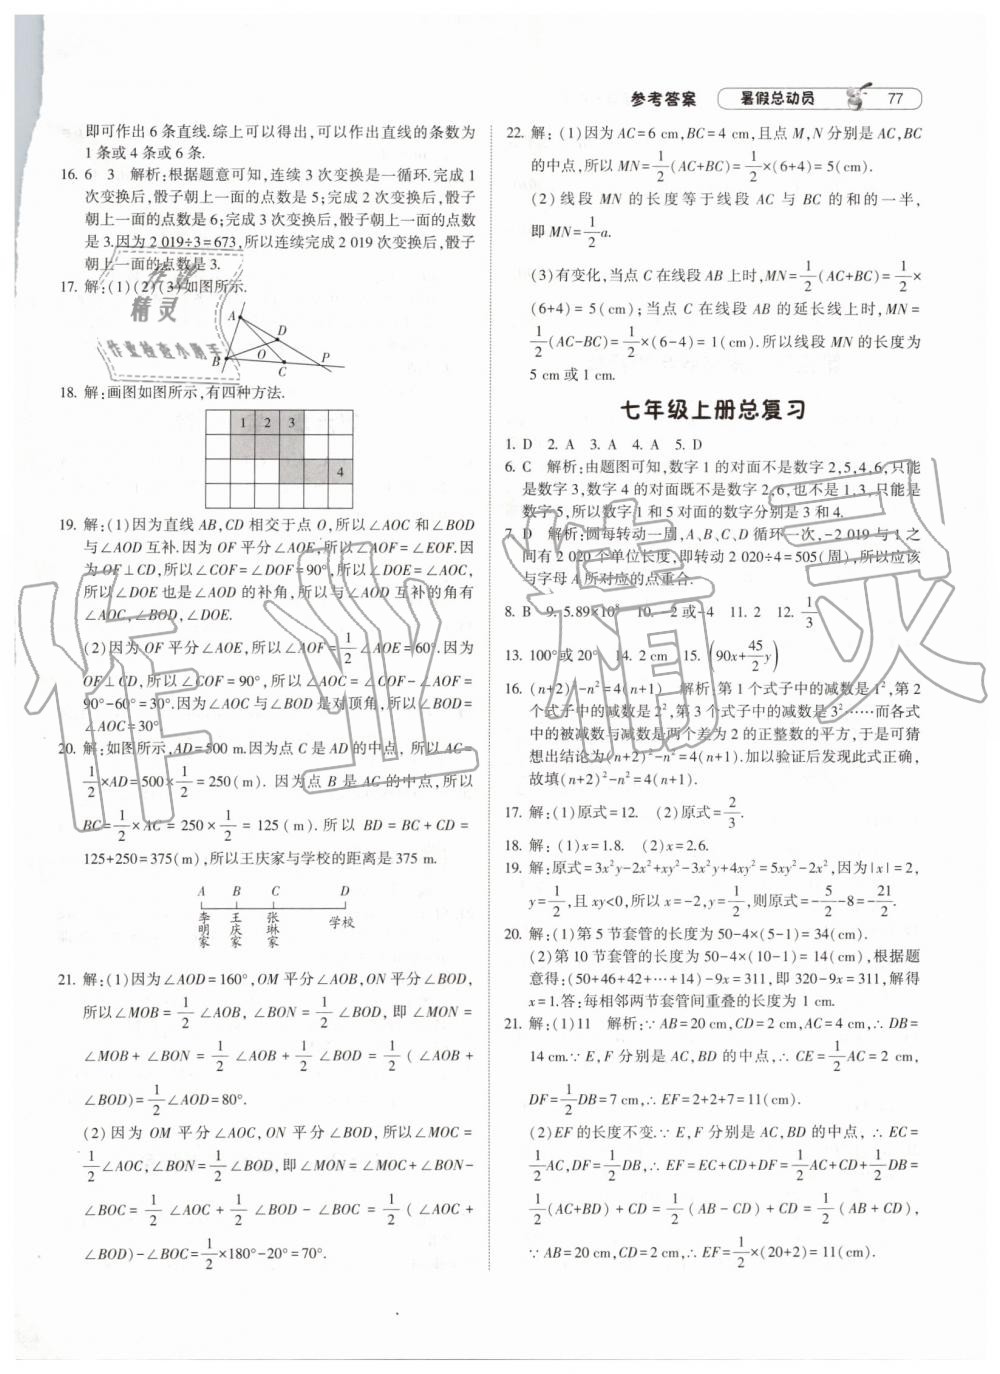 参考答案 暑假总动员 77
即可作出 6 条直线.综上可以得出,可以作出直线的条数为
1 条或 4 条或 6 条.
16. 6 3 解析:根据题意可知,连续 3 次变换是一循环.完成 1
次变换后,骰子朝上一面的点数是 5;完成 2 次变换后,骰子
朝上一面的点数是 6;完成 3 次变换后,骰子朝上一面的点数
是 3.因为 2 019÷3=673,所以连续完成 2 019 次变换后,骰子
朝上一面的点数是 3.
17. 解:(1)(2)(3)如图所示.
A
D
B O C P
18. 解:画图如图所示,有四种方法.
1 2 3
4
19. 解:(1)因为直线 AB,CD 相交于点 O,所以∠AOC 和∠BOD
与∠AOD 互补.因为 OF 平分∠AOE,所以∠AOF=∠EOF.因
为 OF⊥CD,所以∠COF=∠DOF=90°,所以∠DOE=∠AOC,
所以∠DOE 也是∠AOD 的补角,所以与∠AOD 互补的角有
∠AOC,∠BOD,∠DOE.
(2)因为 OF 平分∠AOE,所以∠AOF=1/2∠AOE=60°.因为
OF⊥CD,所以∠COF=90°,所以∠AOC=∠COF-∠AOF=
90°-60°=30°.因为∠AOC 与∠BOD 是对顶角,所以∠BOD=
∠AOC=30°
20. 解:如图所示,AD=500 m.因为点 C 是 AD 的中点, 所以 AC=
1/2×AD=500×1/2=250(m). 因为点 B 是 AC 的中点,所以
BC=1/2×AC=250×1/2=125(m). 所以 BD=BC+CD=
125+250=375(m),所以王庆家与学校的距离是 375 m.
A B C D
李明家 王庆家 张琳家 学校
21. 解:(1)因为∠AOD=160°,OM 平分∠AOB,ON 平分∠BOD,
所以∠MOB=1/2∠AOB,∠BON=1/2∠BOD,即∠MON=
∠MOB+∠BON=1/2∠AOB+1/2∠BOD=1/2(∠AOB+
∠BOD)=1/2∠AOD=80°.
(2)因为 OM 平分∠AOC,ON 平分∠BOD,所以∠MOC=
1/2∠AOC,∠BON=1/2∠BOD,即∠MON=∠MOC+∠BON-
∠BOC=1/2∠AOC+1/2∠BOD-∠BOC=1/2(∠AOC+
∠BOD)-∠BOC=1/2×180°-20°=70°.
22. 解:(1)因为 AC=6 cm,BC=4 cm,且点 M,N 分别是 AC,BC
的中点,所以 MN=1/2(AC+BC)=1/2×(6+4)=5(cm).
(2)线段 MN 的长度等于线段 AC 与 BC 的和的一半,
即 MN=1/2a.
(3)有变化,当点 C 在线段 AB 上时,MN=1/2(AC+BC)=1/2×
(6+4)=5(cm);当点 C 在线段 AB 的延长线上时,MN=
1/2(AC-BC)=1/2×(6-4)=1(cm).所以线段 MN 的长度为
5 cm 或 1 cm.
七年级上册总复习
1. D 2. A 3. A 4. A 5. D
6. C 解析:由题图可知,数字 1 的对面不是数字 2,5,4,6,只能
是数字 3,数字 4 的对面既不是数字 2,6,也不是 1,3,只能是
数字 5,所以数字 1 和 5 对面的数字分别是 3 和 4.
7. D 解析:圆每转动一周,A、B、C、D 循环一次,-2 019 与 1 之
间有 2 020 个单位长度,即转动 2 020÷4=505(周),所以应该
与字母 A 所对应的点重合.
8. B 9. 5.89×10⁸ 10. -2 或-4 11. 2 12. 1/3
13. 100°或 20° 14. 2 cm 15. (90x+45/2y)
16. (n+2)²-n²=4(n+1) 解析:第 1 个式子中的减数是 1²,第 2
个式子中的减数是 2²,第 3 个式子中的减数是 3²……而各式
中的被减数与减数是两个差为 2 的正整数的平方,于是可猜
想出结论为(n+2)²-n²=4(n+1).加以验证后发现此式正确,
故填(n+2)²-n²=4(n+1).
17. 解:(1)原式=12. (2)原式=2/3.
18. 解: (1)x=1.8. (2)x=2.6.
19. 解:原式=3x²y-2x²+xy²-3x²y+4xy²=5xy²-2x²,因为|x|=2,
y=1/2,且 xy<0,所以 x=-2,y=1/2,则原式=-5/2-8=-21/2.
20. 解:(1)第 5 节套管的长度为 50-4×(5-1)=34(cm).
(2)第 10 节套管的长度为 50-4×(10-1)=14(cm),根据题
意得:(50+46+42+…+14)-9x=311,即 320-9x=311,解得
x=1.答:每相邻两节套管间重叠的长度为 1 cm.
21. 解:(1)11 解析:∵AB=20 cm,CD=2 cm,AC=4 cm,∴DB=
14 cm.∵E,F 分别是 AC,BD 的中点,∴CE=1/2AC=2 cm,
DF=1/2DB=7 cm,∴EF=2+2+7=11(cm).
(2)EF 的长度不变.∵E,F 分别是 AC,BD 的中点, ∴EC=
1/2AC,DF=1/2DB,∴EF=EC+CD+DF=1/2AC+CD+1/2DB=
1/2(AC+BD)+CD=1/2(AB-CD)+CD=1/2(AB+CD),
∵AB=20 cm,CD=2 cm,∴EF=1/2×(20+2)=11(cm).
作业
精灵
作业检查小助手
作业精灵